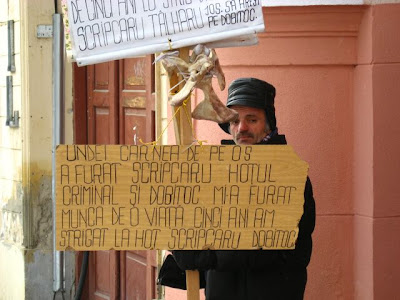 DE CINCI ANI LA STRIG
SCRIPCARU TÂLHARU
JOS. SĂ ARZI
PE DOBITOC.
UNDEI CARNEA DE PE OS
A FURAT SCRIPCARU HOTUL
CRIMINAL ȘI DOBITOC MI-A FURAT
MUNCA DE O VIATĂ CINCI ANI AM
STRIGAT LA HOȚ SCRIPCARU DOBITOC